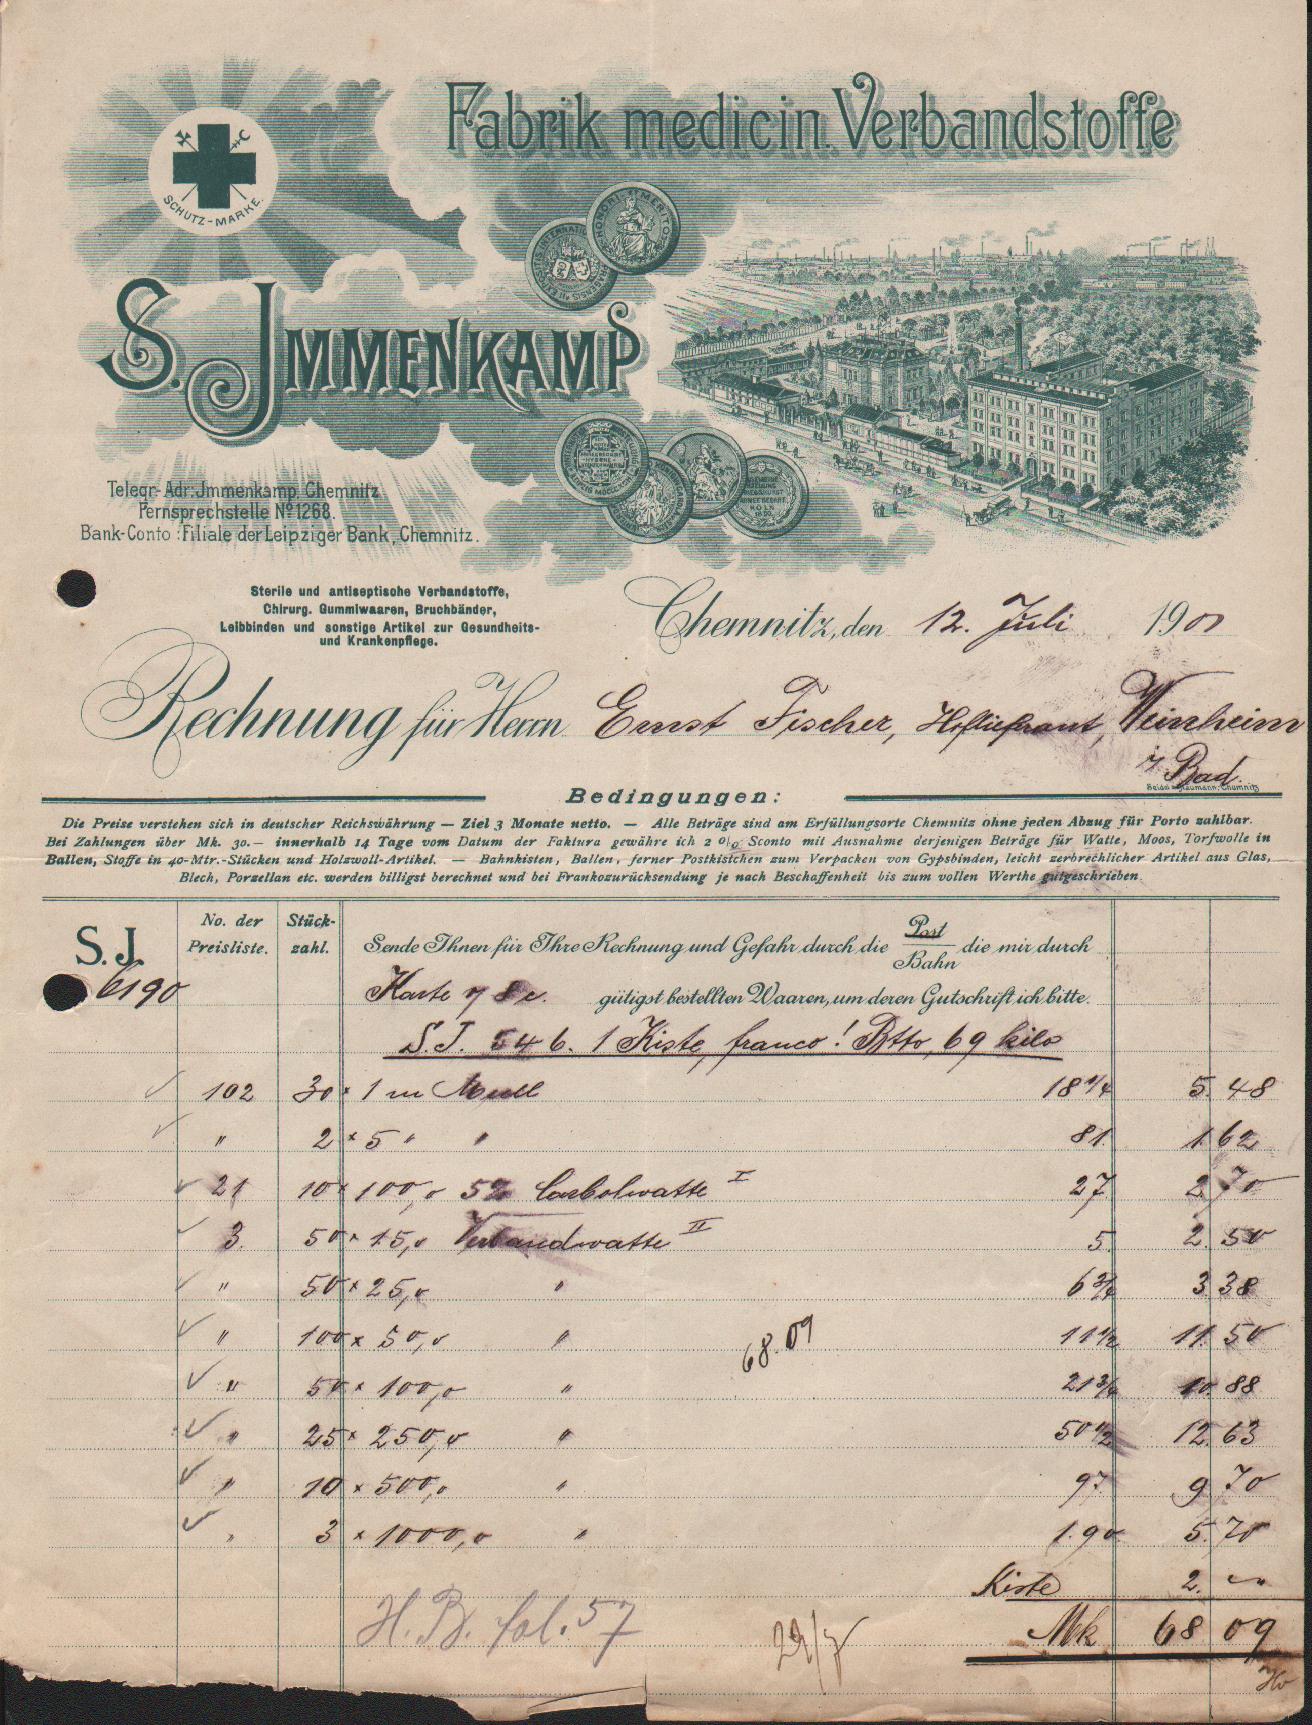 Fabrik medicin. Verbandstoffe
SCHUTZ-MARKE.
HONORI MERITO
S. JMMENKAMP
KÖLN
Telegr.-Adr.: Jmmenkamp, Chemnitz
Fernsprechstelle No 1268.
Bank-Conto: Filiale der Leipziger Bank, Chemnitz.
Sterile und antiseptische Verbandstoffe,
Chirurg. Gummiwaaren, Bruchbänder,
Leibbinden und sonstige Artikel zur Gesundheits-
und Krankenpflege.
Chemnitz, den 12. Juli 190
Rechnung für Herrn Ernst Fischer, Hoflieferant, Weinheim
i/ Bad.
Bedingungen:
Die Preise verstehen sich in deutscher Reichswährung — Ziel 3 Monate netto. — Alle Beträge sind am Erfüllungsorte Chemnitz ohne jeden Abzug für Porto zahlbar.
Bei Zahlungen über Mk. 30.— innerhalb 14 Tage vom Datum der Faktura gewähre ich 2 0/0 Sconto mit Ausnahme derjenigen Beträge für Watte, Moos, Torfwolle in
Ballen, Stoffe in 40-Mtr.-Stücken und Holzwoll-Artikel. — Bahnkisten, Ballen, ferner Postkistchen zum Verpacken von Gypsbinden, leicht zerbrechlicher Artikel aus Glas,
Blech, Porzellan etc. werden billigst berechnet und bei Frankozurücksendung je nach Beschaffenheit bis zum vollen Werthe gutgeschrieben.
S. J. 6190
No. der Preisliste.
Stückzahl.
Sende Ihnen für Ihre Rechnung und Gefahr durch die Post/Bahn die mir durch
Karte gütigst bestellten Waaren, um deren Gutschrift ich bitte.
S.J. 546. 1 Kiste, franco! Btto, 69 kilo
102 30 × 1 m Mull 18 1/4 5. 48
" 2 × 5 " " 81 1. 62
21 10 × 100,0 5% Carbolwatte I 27 2. 70
3. 50 × 15,0 Verbandwatte II 5. 2. 50
" 50 × 25,0 " 6 3/4 3 38
" 100 × 50,0 " 11 1/2 11. 50
68.09
" 50 × 100,0 " 21 3/4 10. 88
" 25 × 250,0 " 50 1/2 12. 63
" 10 × 500,0 " 97 9 70
" 3 × 1000,0 " 1.90 5. 70
Kiste 2. "
H. B. fol. 57
29/7
Mk 68 09